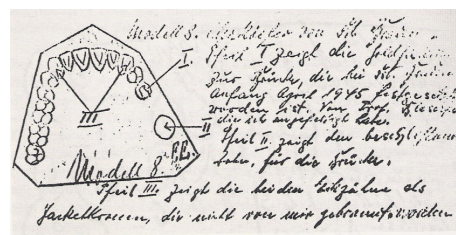 Modell 8. Unterkiefer von Frl. Braun.
Pfeil I zeigt die Goldfüllung
zur Brücke, die bei Frl. Braun
Anfang April 1945
worden ist. Von Prof.
die ich angefertigt habe.
Pfeil II. zeigt den beschliffenen
Zahn, für die Brücke.
Pfeil III. zeigt die beiden Eckzähne als
Jacketkronen, die nicht von mir gebrannt worden
I.
II
III
Modell 8.
F.E.